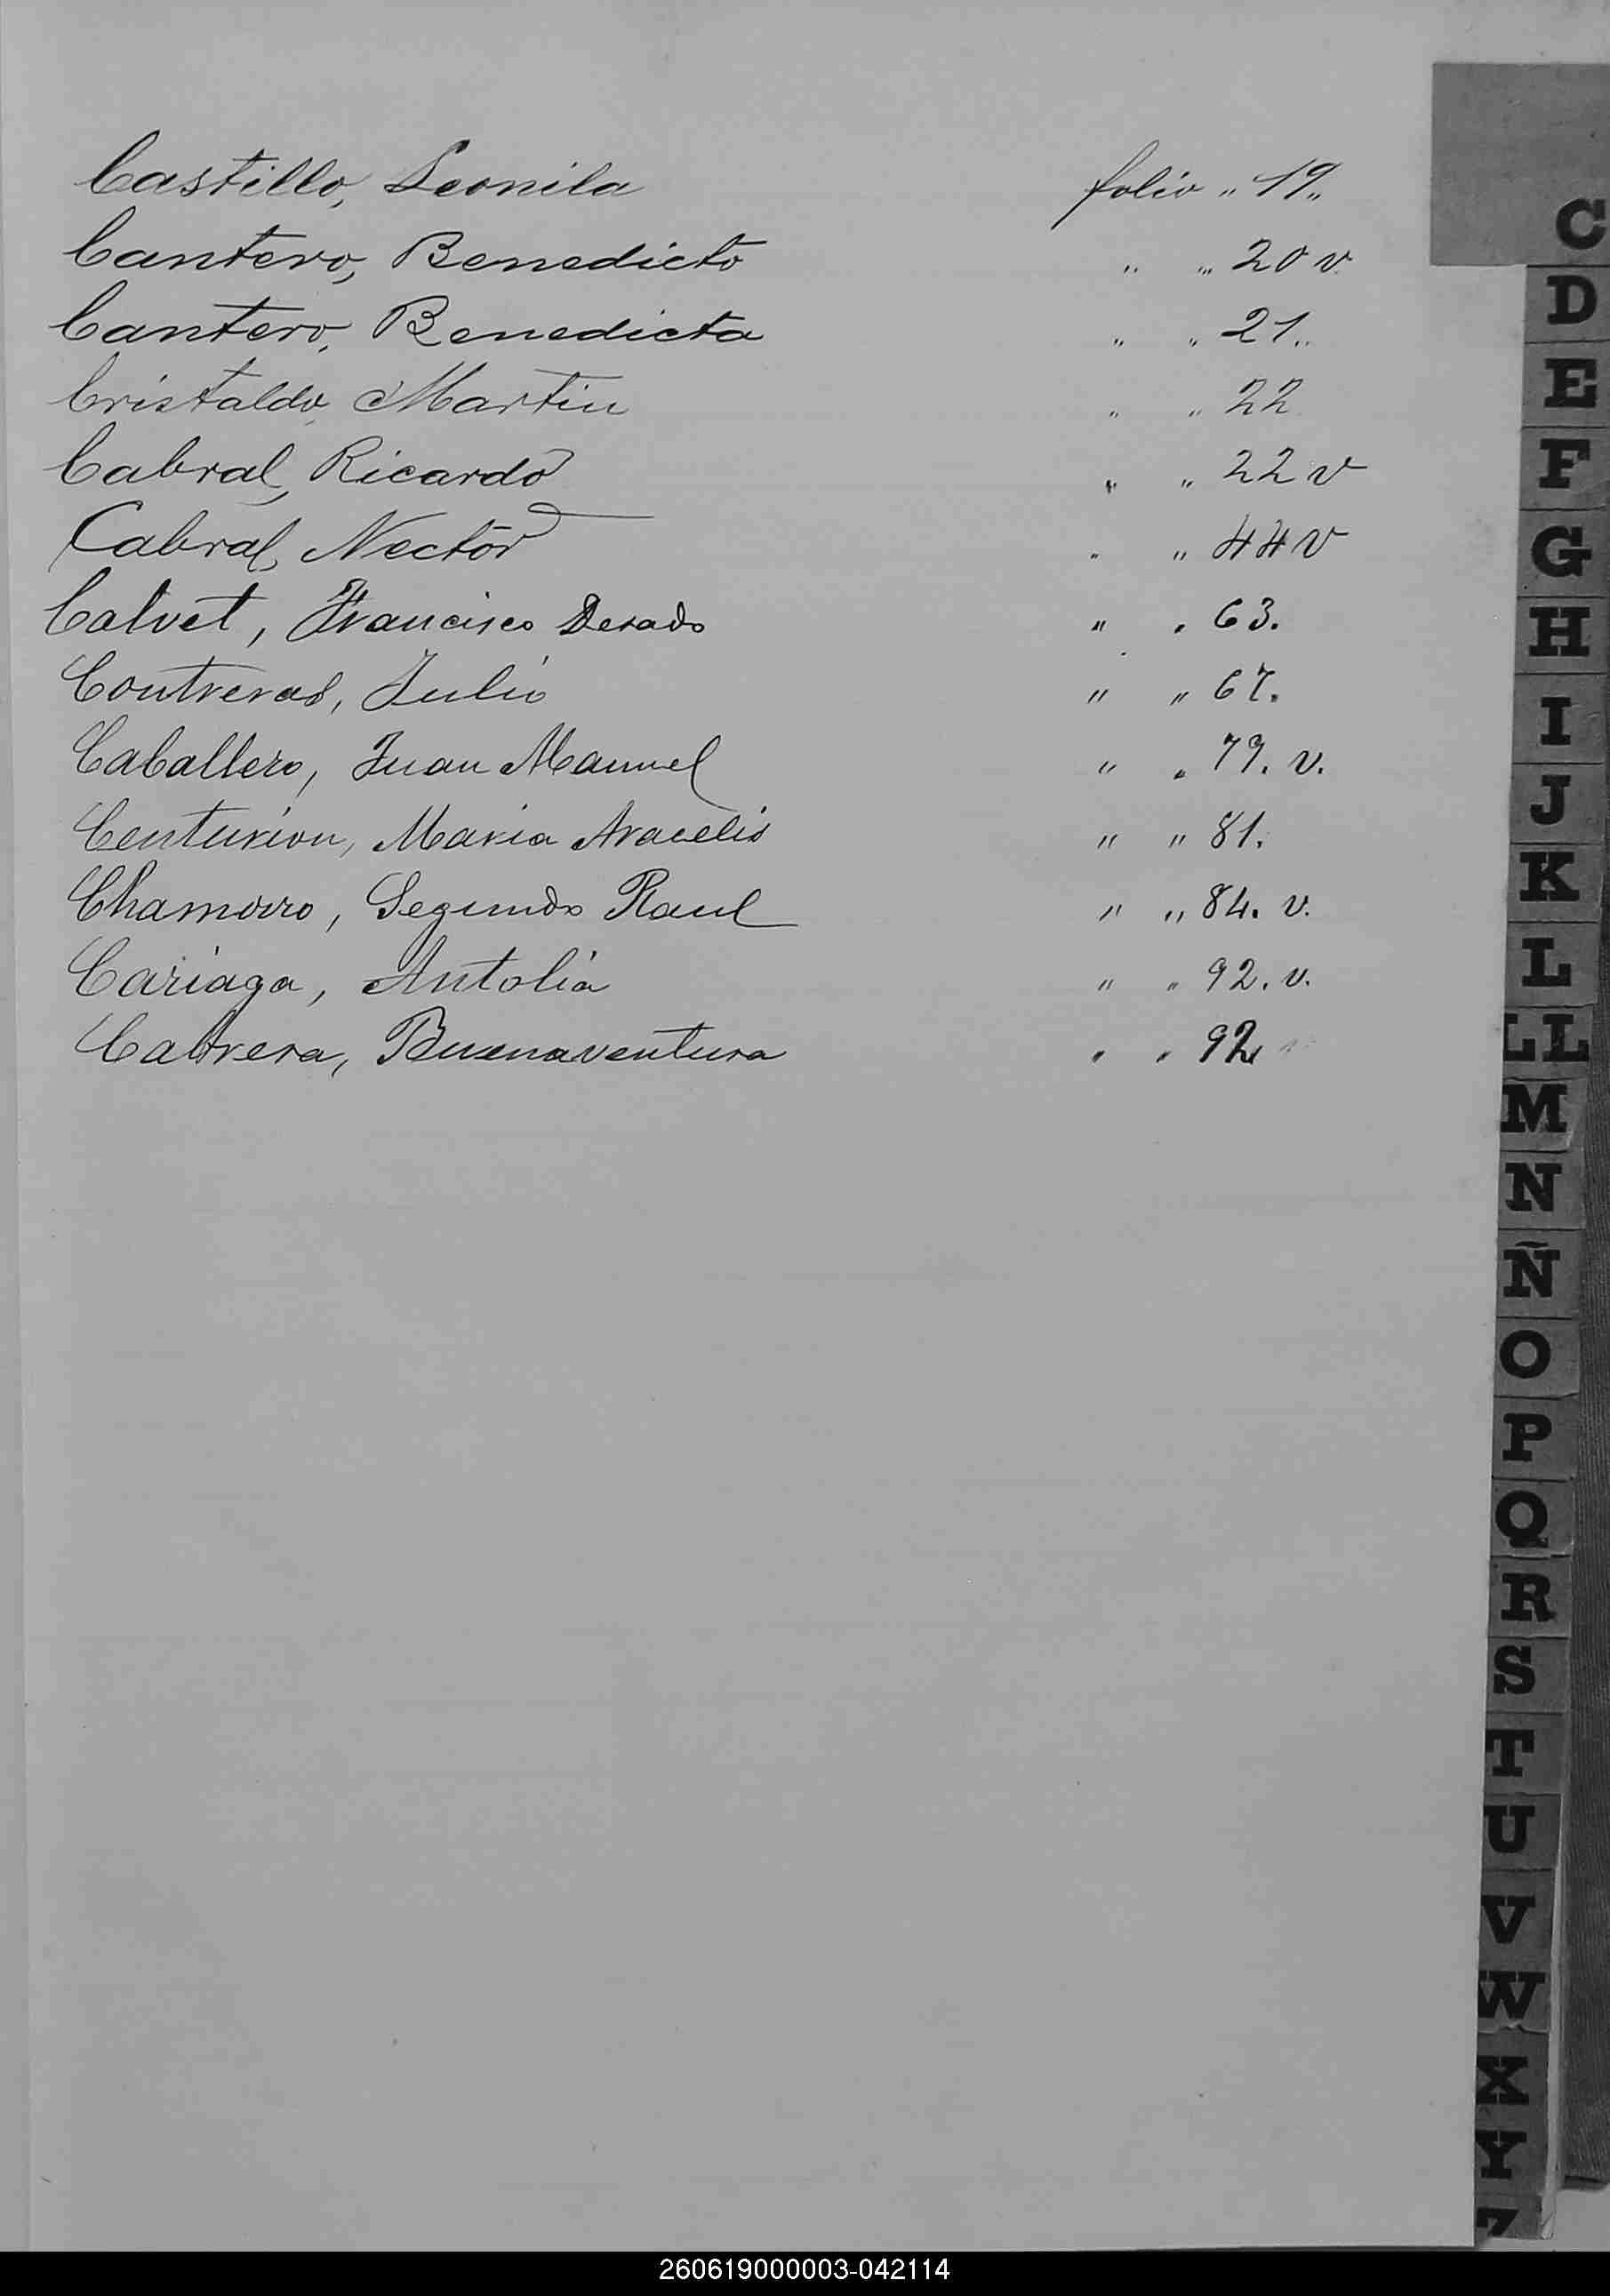 Castillo, Leonila folio „ 19„
Cantero, Benedicto „ „ 20 v
Cantero, Benedicta „ „ 21„
Cristaldo, Martin „ „ 22
Cabral, Ricardo „ „ 22 v
Cabral, Nector „ „ 44 v
Calvet, Francisco Desado „ „ 63.
Contreras, Julio „ „ 67.
Caballero, Juan Manuel „ „ 79. v.
Centurion, Maria Aracelis „ „ 81.
Chamorro, Segundo Raul „ „ 84. v.
Cariaga, Antolia „ „ 92. v.
Cabrera, Buenaventura „ „ 92
C
D
E
F
G
H
I
J
K
L
LL
M
N
Ñ
O
P
Q
R
S
T
U
V
W
X
Y
Z
260619000003-042114